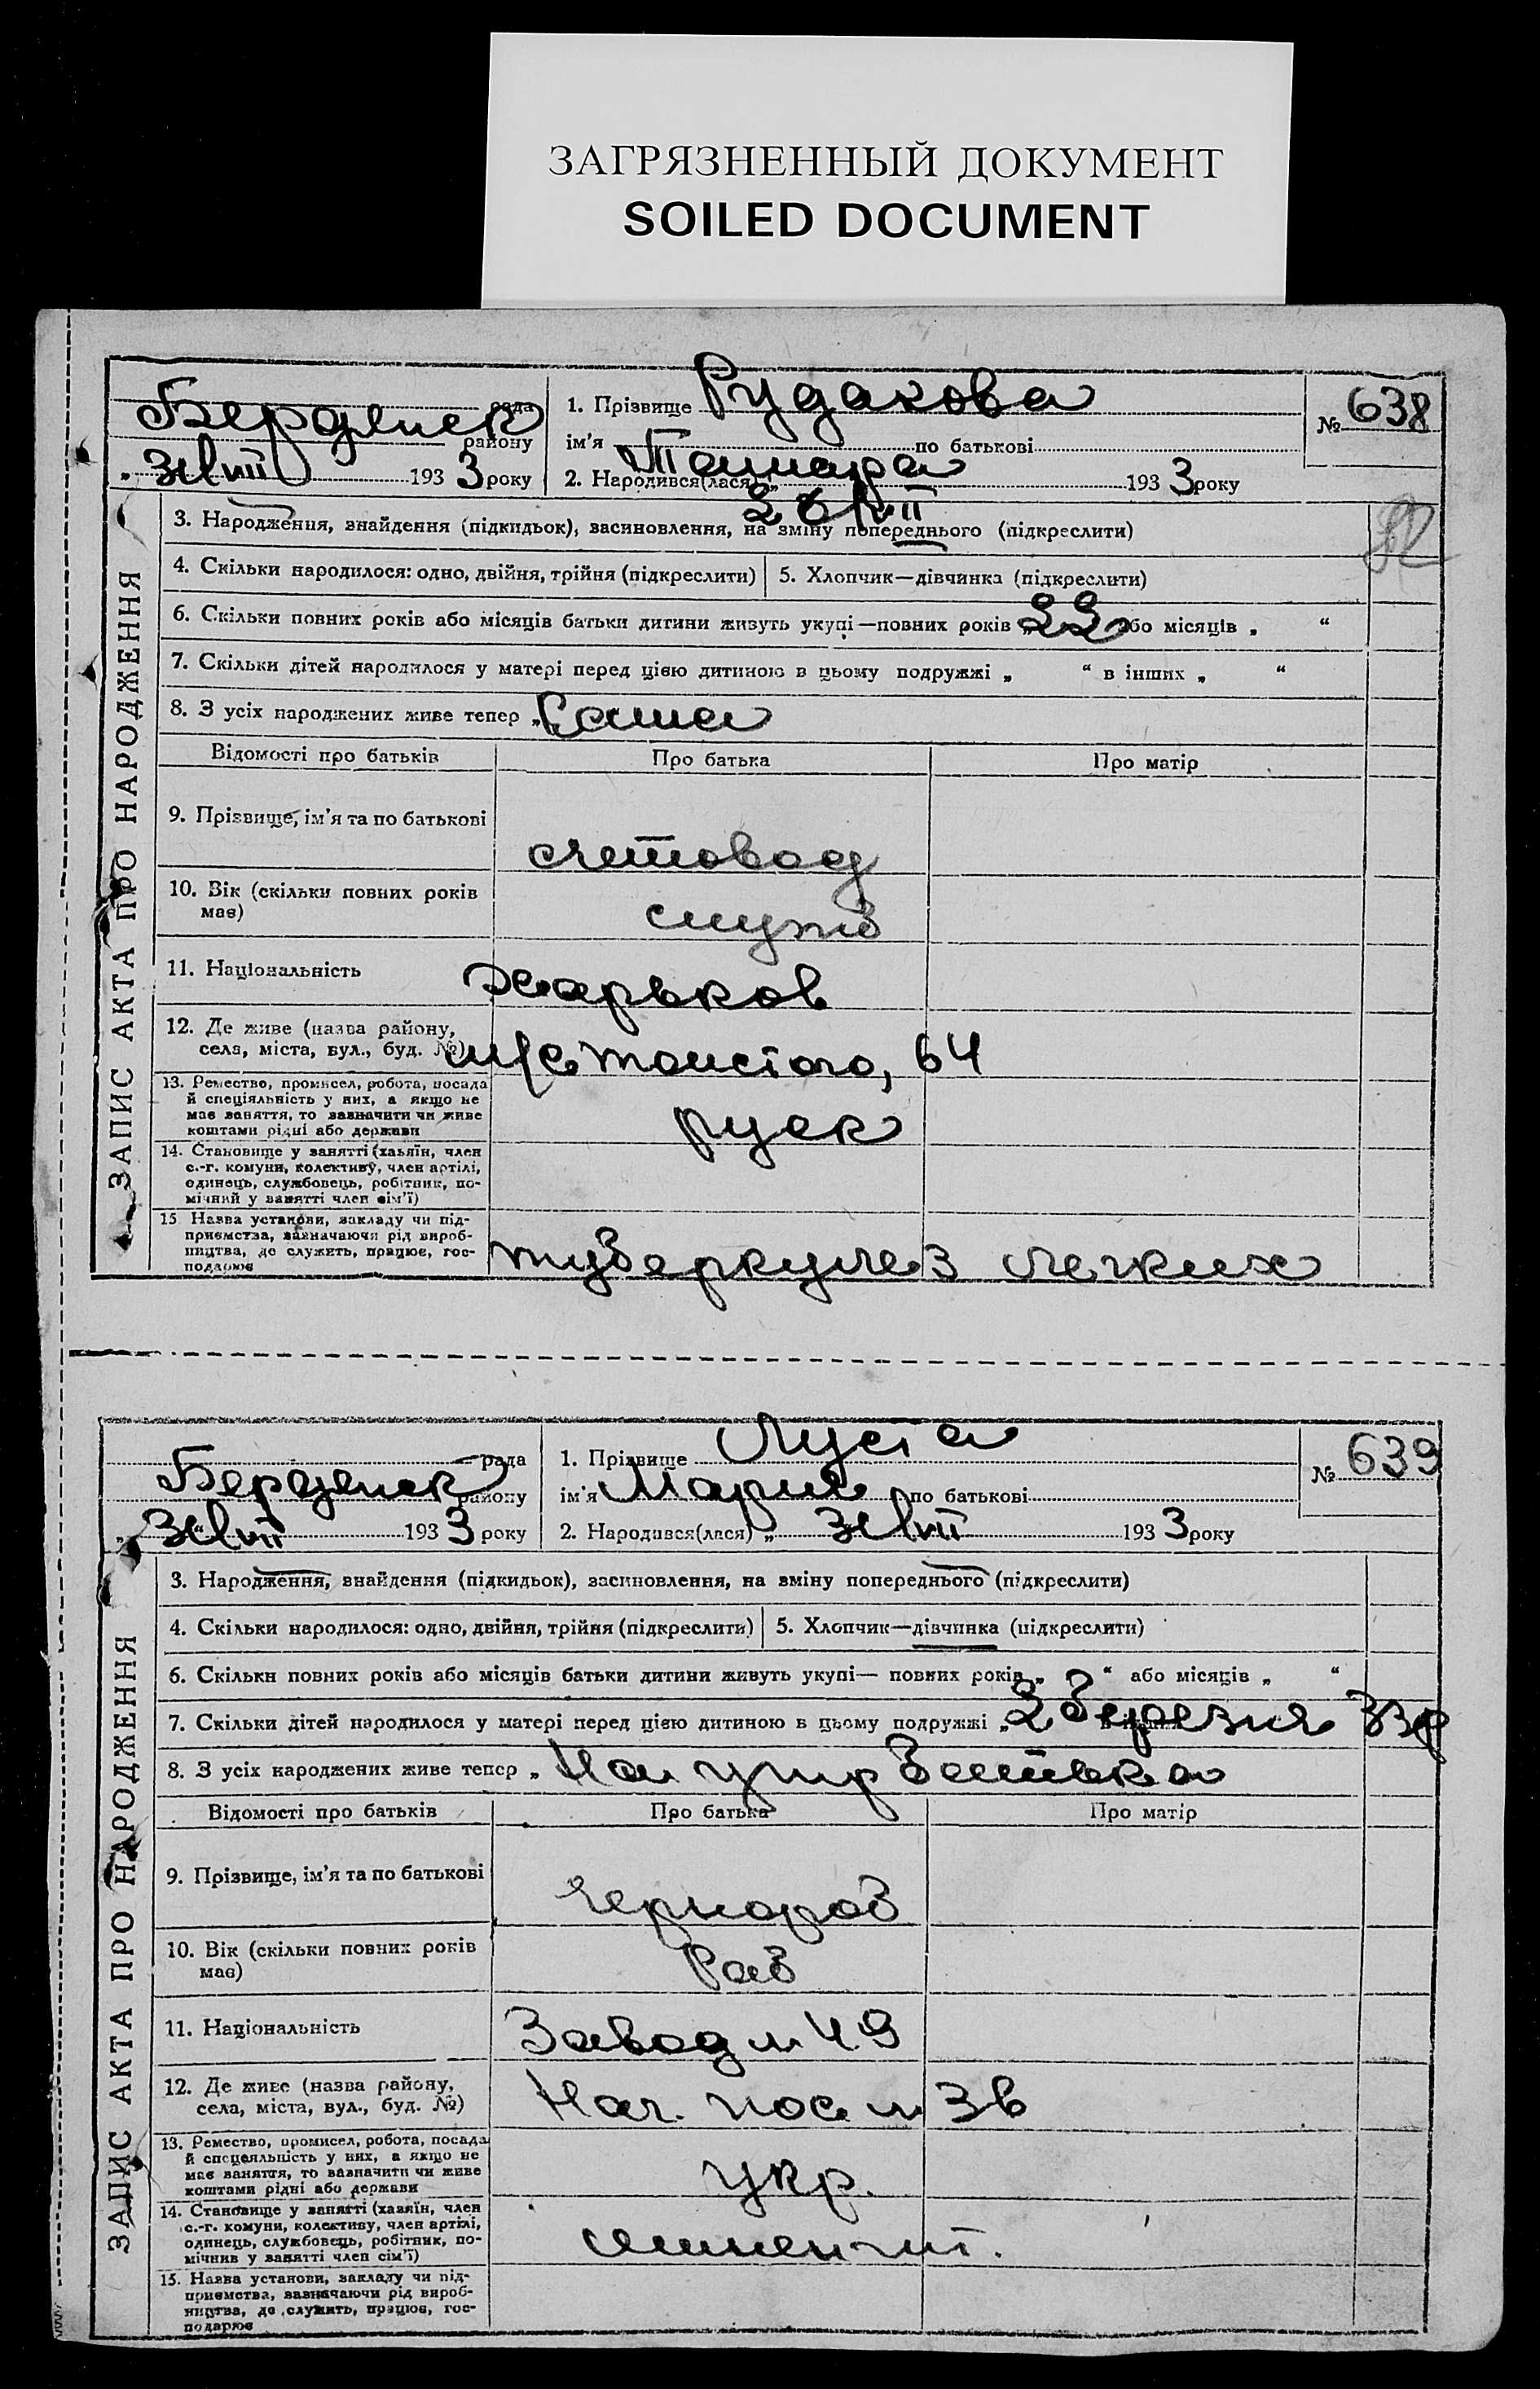 ЗАГРЯЗНЕННЫЙ ДОКУМЕНТ
SOILED DOCUMENT
ЗАПИС АКТА ПРО НАРОДЖЕННЯ
рада
Бердянск
району
193 3 року
1. Прізвище Рудакова
ім'я Тамара по батькові
2. Народився(лася) „ 193 3 року
№ 638
3. Народження, знайдення (підкидьок), засиновлення, на зміну попереднього (підкреслити)
4. Скільки народилося: одно, двійня, трійня (підкреслити)
5. Хлопчик—дівчинка (підкреслити)
6. Скільки повних років або місяців батьки дитини живуть укупі—повних років „ 22 або місяців „ “
7. Скільки дітей народилося у матері перед цією дитиною в цьому подружжі „ “ в інших „ “
8. З усіх народжених живе тепер „ Сама
Відомості про батьків
Про батька
Про матір
9. Прізвище, ім'я та по батькові
счетовод
10. Вік (скільки повних років має)
служб
11. Національність
Харьков
12. Де живе (назва району, села, міста, вул., буд. №)
Толстого, 64
13. Ремество, промисел, робота, посада
й спеціяльність у них, а якщо не
має заняття, то зазначити чи живе
коштами рідні або держави
руск
14. Становище у занятті (хазяїн, член
с.-г. комуни, колективу, член артілі,
одинець, службовець, робітник, по-
мічний у занятті член сім'ї)
15 Назва установи, закладу чи під-
приємства, зазначаючи рід вироб-
ництва, де служить, працює, гос-
подарює
туберкулез легких
ЗАПИС АКТА ПРО НАРОДЖЕННЯ
рада
Бердянск
району
193 3 року
1. Прізвище Луста
ім'я Мария по батькові
2. Народився(лася) „ 193 3 року
№ 639
3. Народження, знайдення (підкидьок), засиновлення, на зміну попереднього (підкреслити)
4. Скільки народилося: одно, двійня, трійня (підкреслити)
5. Хлопчик—дівчинка (підкреслити)
6. Скільки повних років або місяців батьки дитини живуть укупі— повних років „ “ або місяців „ “
7. Скільки дітей народилося у матері перед цією дитиною в цьому подружжі „ 2 березня 33р
8. З усіх народжених живе тепер „ На утр батька
Відомості про батьків
Про батька
Про матір
9. Прізвище, ім'я та по батькові
Чернораб
10. Вік (скільки повних років має)
Раб
11. Національність
Завод 49
12. Де живе (назва району, села, міста, вул., буд. №)
пос
13. Ремество, промисел, робота, посада
й спецеяльність у них, а якщо не
має заняття, то зазначити чи живе
коштами рідні або держави
укр.
14. Становище у занятті (хазяїн, член
с.-г. комуни, колективу, член артілі,
одинець, службовець, робітник, по-
мічнив у занятті член сім'ї)
15. Назва установи, закладу чи під-
приємства, зазначаючи рід вироб-
ництва, де служить, працює, гос-
подарює